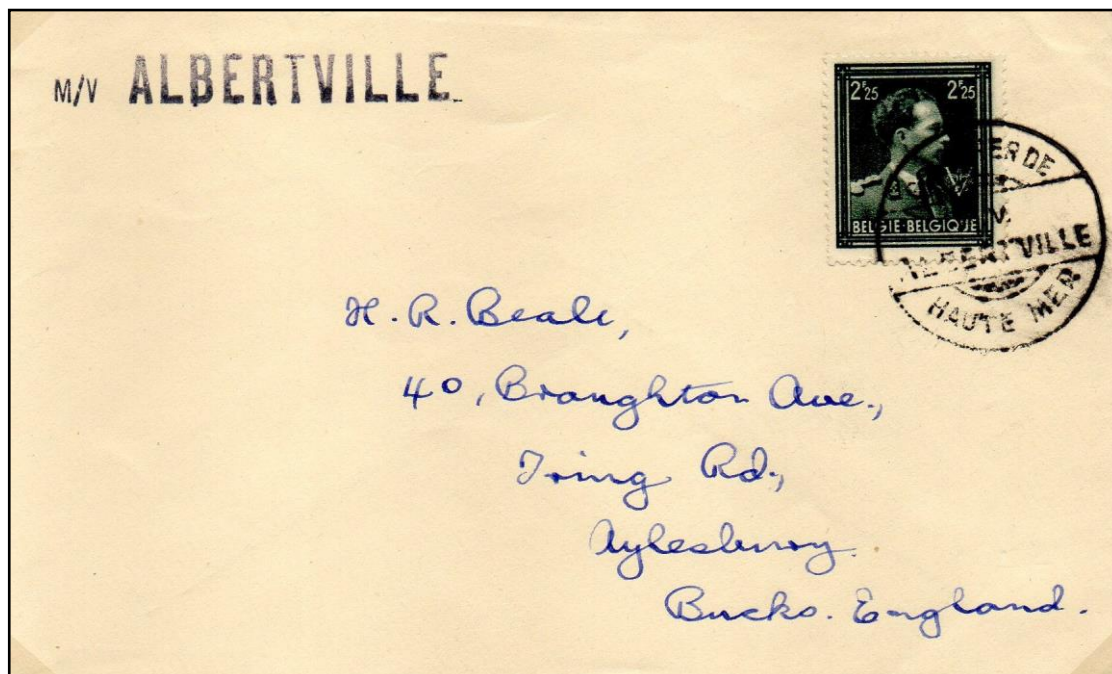 M/V ALBERTVILLE
2F25 2F25
BELGIE-BELGIQUE
ALBERTVILLE
HAUTE MER
H. R. Beale,
40, Broughton Ave.,
Tring Rd.,
Aylesbury.
Bucks. England.